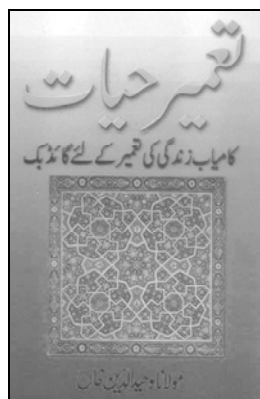 تعمیر حیات
کامیاب زندگی کی تعمیر کے لئے گائڈ بک
مولانا وحید الدین خاں